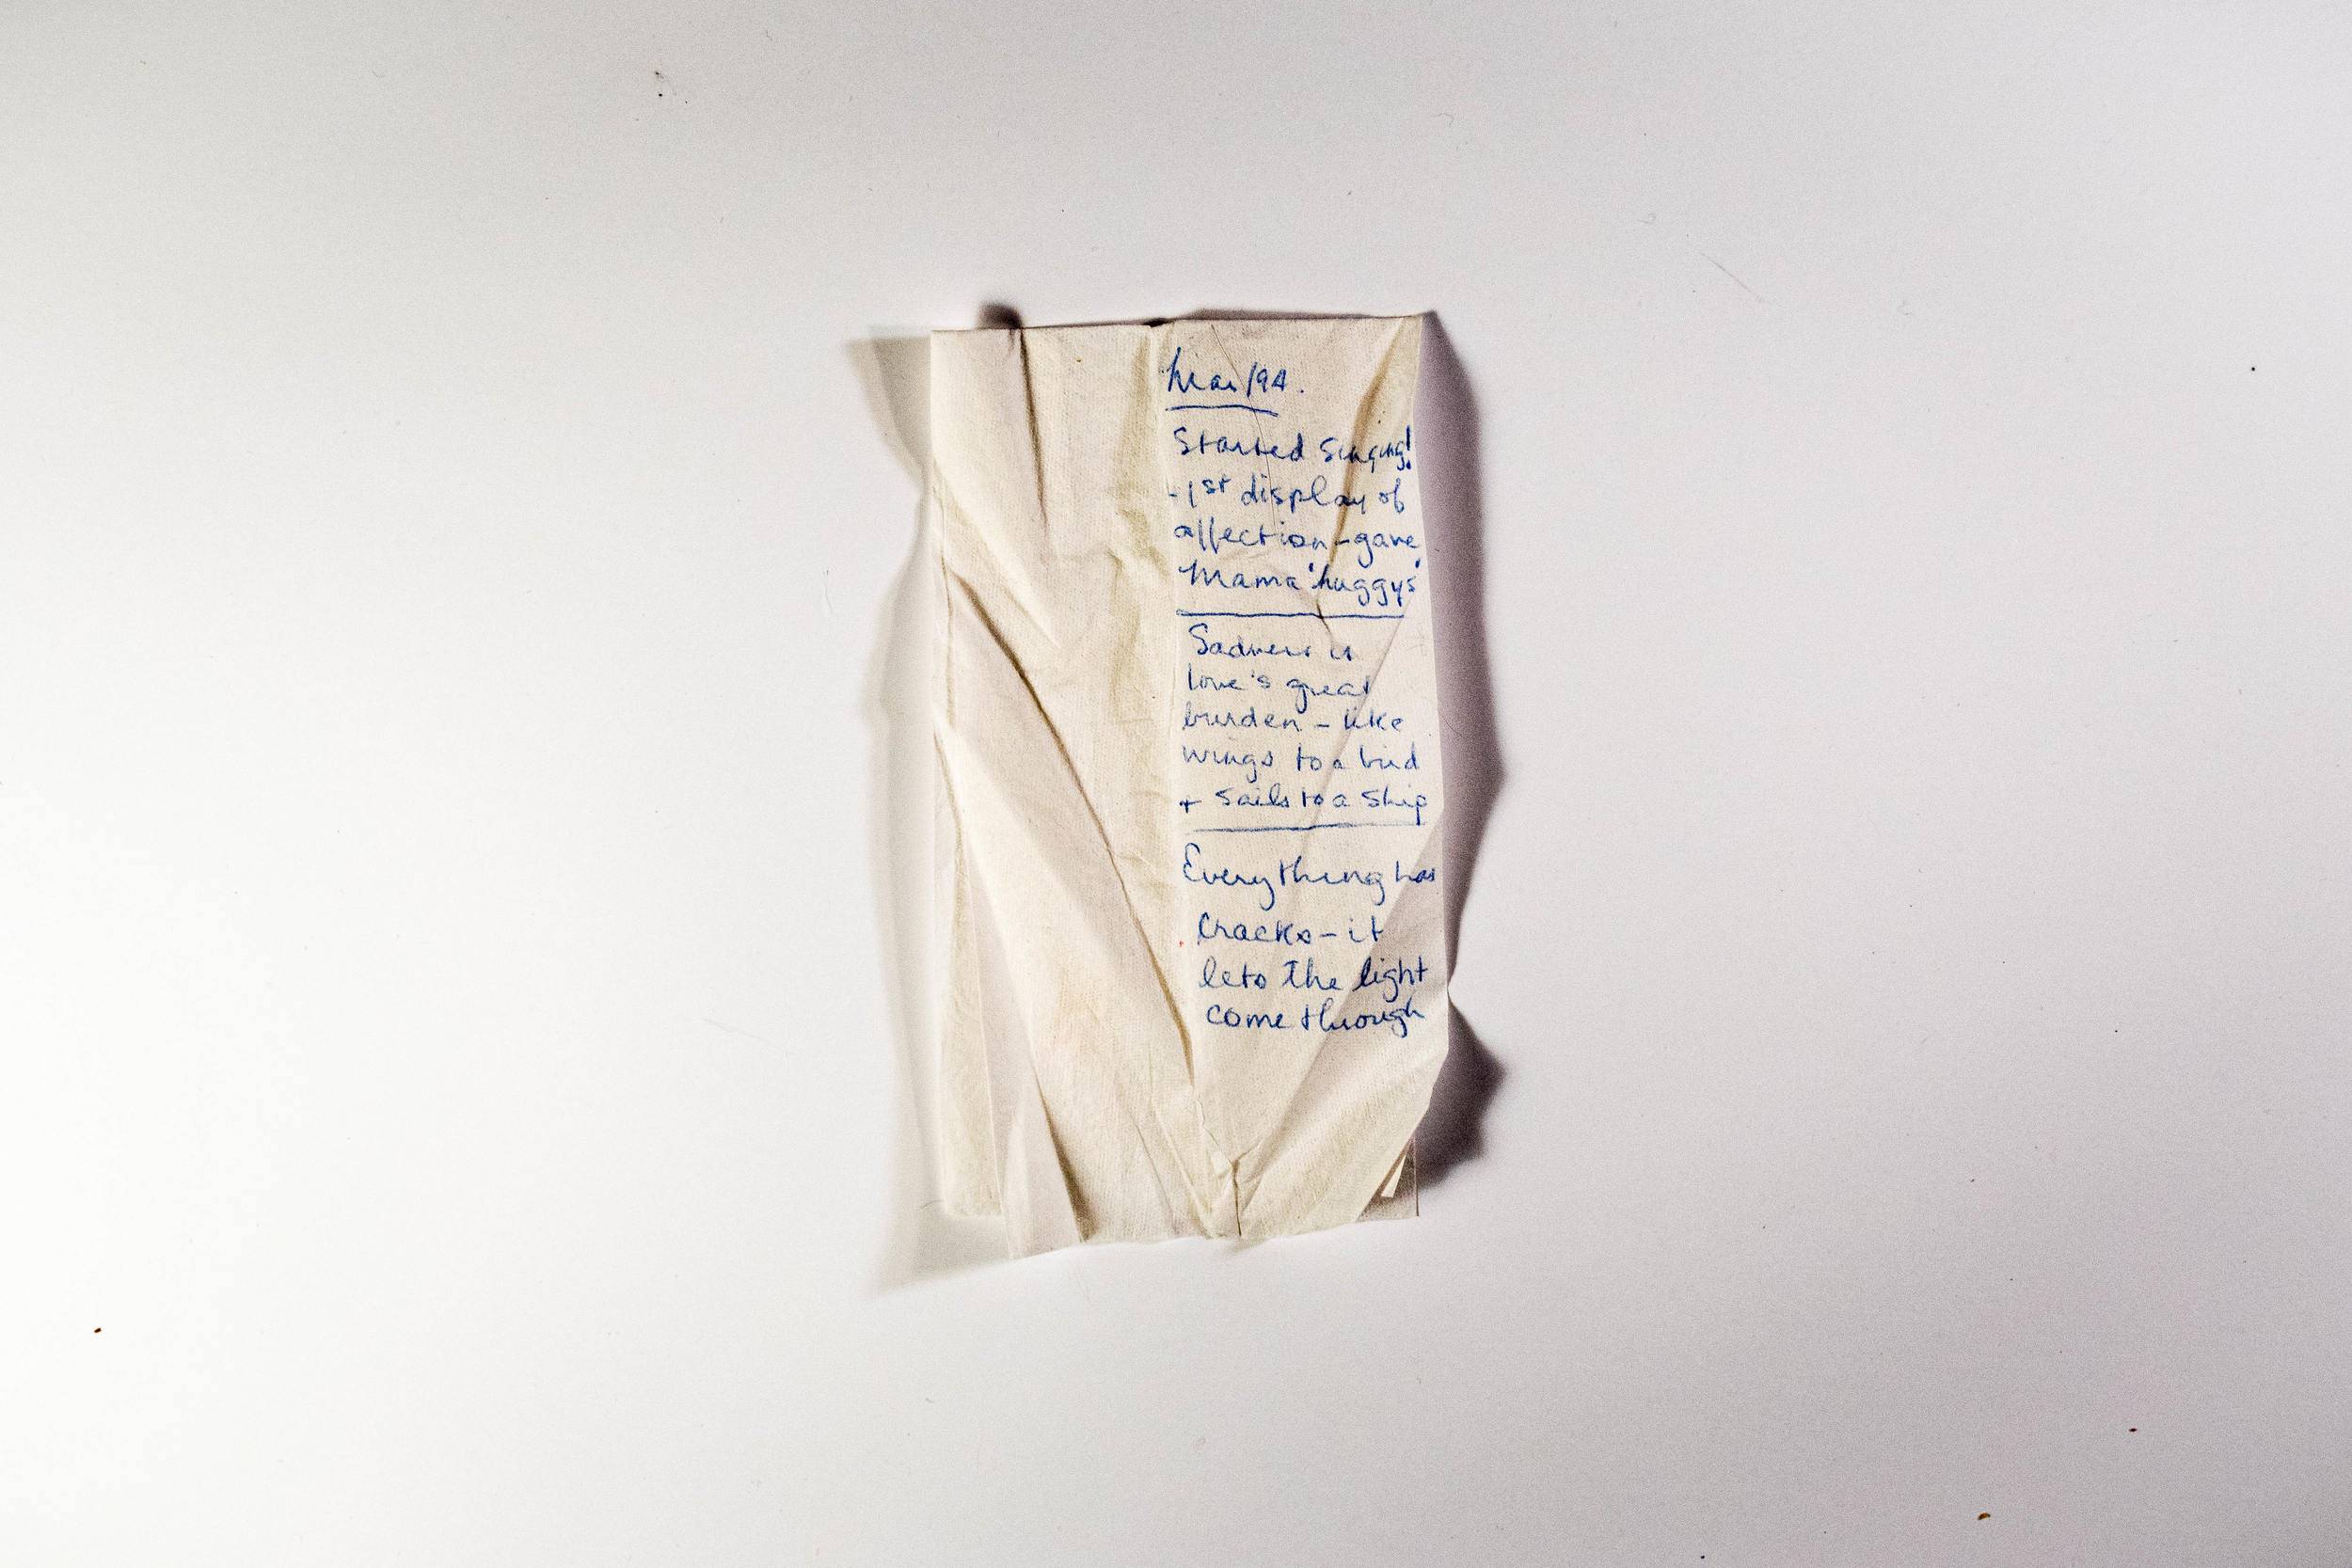 Mar/94.
Started Singing!
-1st display of
affection-gave
Mama 'huggys'
Sadness is
love's great
burden - like
wings to a bird
+ Sails to a Ship
Everything has
Cracks - it
lets the light
come through